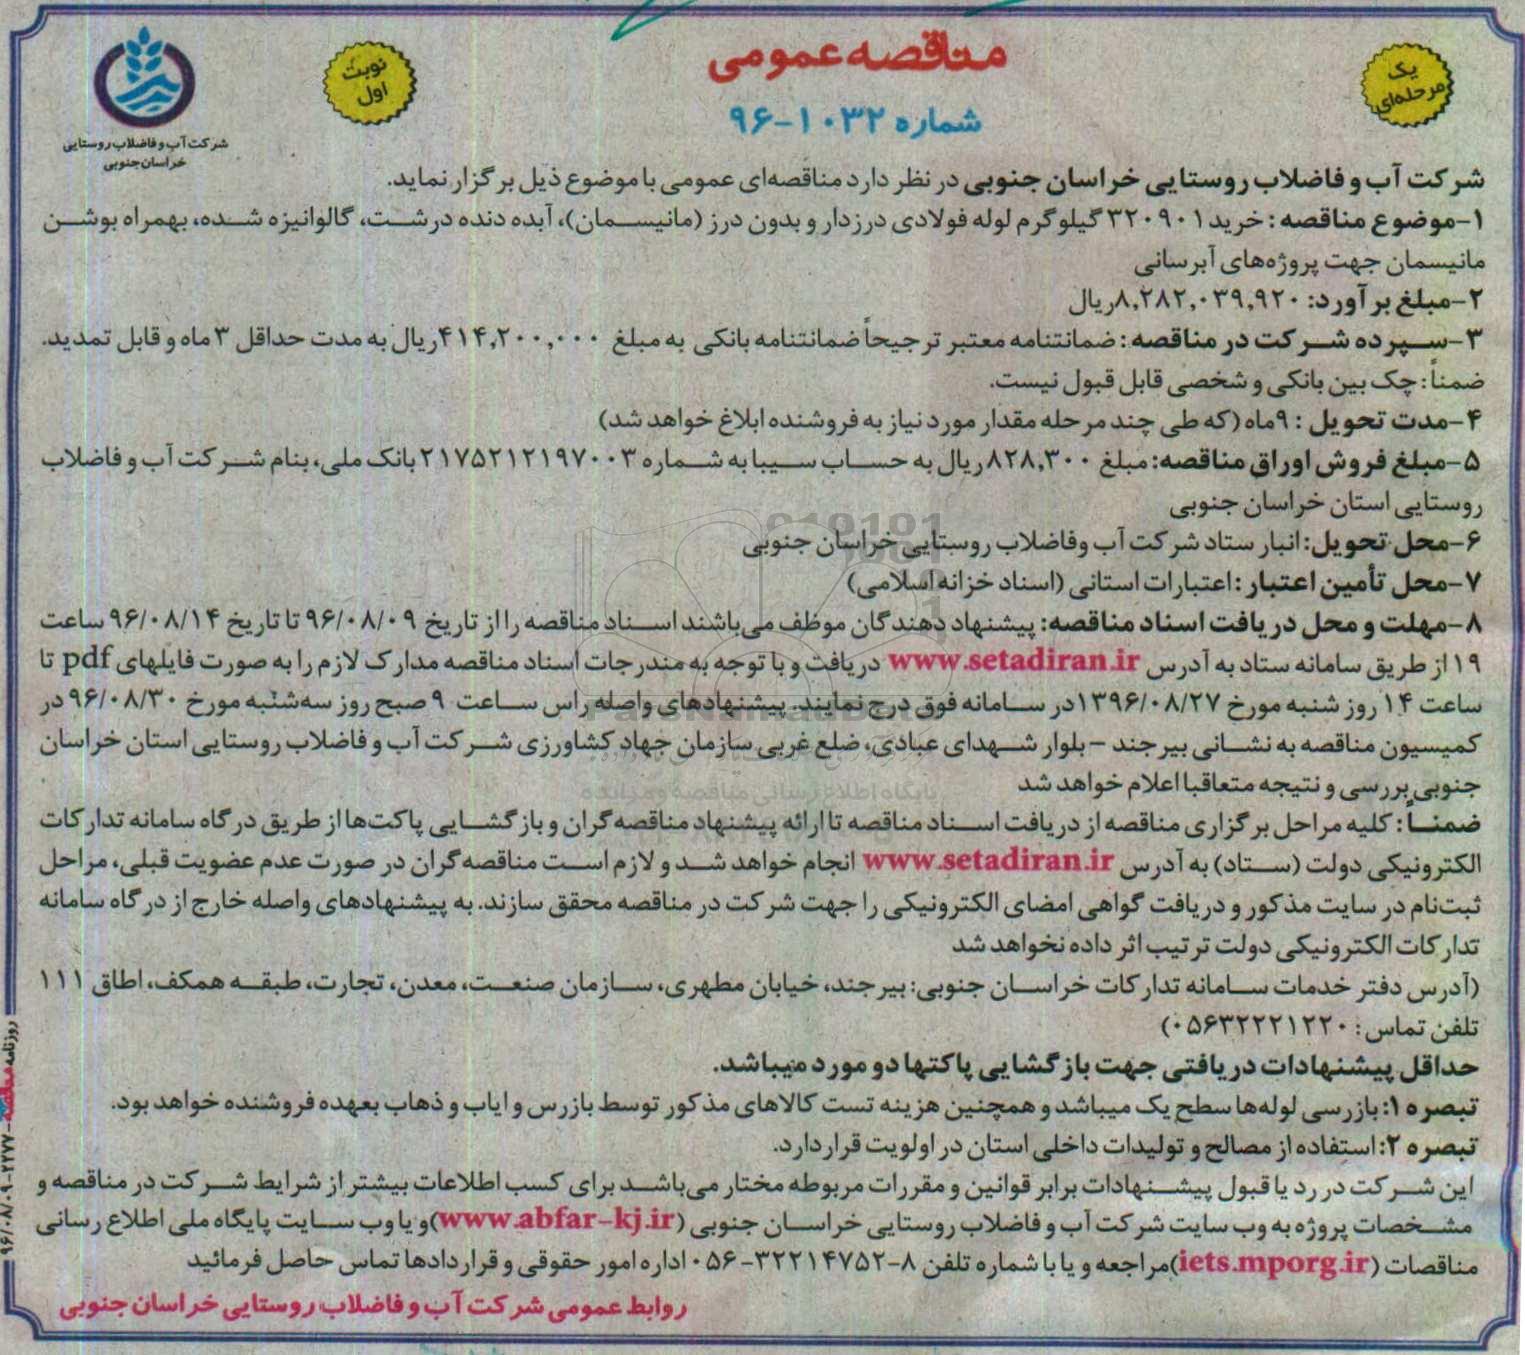 مناقصه عمومی
شماره ۱۰۳۲-۹۶
یک
مرحله‌ای
نوبت
اول
شرکت آب و فاضلاب روستایی
خراسان جنوبی
شرکت آب و فاضلاب روستایی خراسان جنوبی در نظر دارد مناقصه‌ای عمومی با موضوع ذیل برگزار نماید.
۱-موضوع مناقصه: خرید ۳۲۰۹۰۱ گیلوگرم لوله فولادی درزدار و بدون درز (مانیسمان)، آبده دنده درشت، گالوانیزه شده، بهمراه بوشن
مانیسمان جهت پروژه‌های آبرسانی
۲-مبلغ برآورد: ۸,۲۸۲,۰۳۹,۹۲۰ریال
۳-سپرده شرکت در مناقصه: ضمانتنامه معتبر ترجیحاً ضمانتنامه بانکی به مبلغ ۴۱۴,۲۰۰,۰۰۰ریال به مدت حداقل ۳ ماه و قابل تمدید.
ضمناً: چک بین بانکی و شخصی قابل قبول نیست.
۴-مدت تحویل : ۹ماه (که طی چند مرحله مقدار مورد نیاز به فروشنده ابلاغ خواهد شد)
۵-مبلغ فروش اوراق مناقصه: مبلغ ۸۲۸,۳۰۰ریال به حساب سیبا به شماره ۲۱۷۵۲۱۲۱۹۷۰۰۳ بانک ملی، بنام شرکت آب و فاضلاب
روستایی استان خراسان جنوبی
۶-محل تحویل: انبار ستاد شرکت آب وفاضلاب روستایی خراسان جنوبی
۷-محل تأمین اعتبار: اعتبارات استانی (اسناد خزانه اسلامی)
۸-مهلت و محل دریافت اسناد مناقصه: پیشنهاد دهندگان موظف می‌باشند اسناد مناقصه را از تاریخ ۹۶/۰۸/۰۹ تا تاریخ ۹۶/۰۸/۱۴ ساعت
۱۹ از طریق سامانه ستاد به آدرس www.setadiran.ir دریافت و با توجه به مندرجات اسناد مناقصه مدارک لازم را به صورت فایلهای pdf تا
ساعت ۱۴ روز شنبه مورخ ۱۳۹۶/۰۸/۲۷در سامانه فوق درج نمایند. پیشنهادهای واصله راس ساعت ۹ صبح روز سه‌شنبه مورخ ۹۶/۰۸/۳۰ در
کمیسیون مناقصه به نشانی بیرجند – بلوار شهدای عبادی، ضلع غربی سازمان جهاد کشاورزی شرکت آب و فاضلاب روستایی استان خراسان
جنوبی بررسی و نتیجه متعاقبا اعلام خواهد شد
ضمناً: کلیه مراحل برگزاری مناقصه از دریافت اسناد مناقصه تا ارائه پیشنهاد مناقصه‌گران و بازگشایی پاکت‌ها از طریق درگاه سامانه تدارکات
الکترونیکی دولت (ستاد) به آدرس www.setadiran.ir انجام خواهد شد و لازم است مناقصه‌گران در صورت عدم عضویت قبلی، مراحل
ثبت‌نام در سایت مذکور و دریافت گواهی امضای الکترونیکی را جهت شرکت در مناقصه محقق سازند. به پیشنهادهای واصله خارج از درگاه سامانه
تدارکات الکترونیکی دولت ترتیب اثر داده نخواهد شد
(آدرس دفتر خدمات سامانه تدارکات خراسان جنوبی: بیرجند، خیابان مطهری، سازمان صنعت، معدن، تجارت، طبقه همکف، اطاق ۱۱۱
تلفن تماس: ۰۵۶۳۲۲۲۱۲۲۰)
حداقل پیشنهادات دریافتی جهت بازگشایی پاکتها دو مورد میباشد.
تبصره ۱: بازرسی لوله‌ها سطح یک میباشد و همچنین هزینه تست کالاهای مذکور توسط بازرس و ایاب و ذهاب بعهده فروشنده خواهد بود.
تبصره ۲: استفاده از مصالح و تولیدات داخلی استان در اولویت قرار دارد.
این شرکت در رد یا قبول پیشنهادات برابر قوانین و مقررات مربوطه مختار می‌باشد برای کسب اطلاعات بیشتر از شرایط شرکت در مناقصه و
مشخصات پروژه به وب سایت شرکت آب و فاضلاب روستایی خراسان جنوبی (www.abfar-kj.ir)و یا وب سایت پایگاه ملی اطلاع رسانی
مناقصات (iets.mporg.ir)مراجعه و یا با شماره تلفن ۸-۳۲۲۱۴۷۵۲-۰۵۶ اداره امور حقوقی و قراردادها تماس حاصل فرمائید
روابط عمومی شرکت آب و فاضلاب روستایی خراسان جنوبی
پایگاه اطلاع رسانی مناقصه و مزایده
روزنامه مناقصه-۲۲۷۷-۹۶/۰۸/۰۹